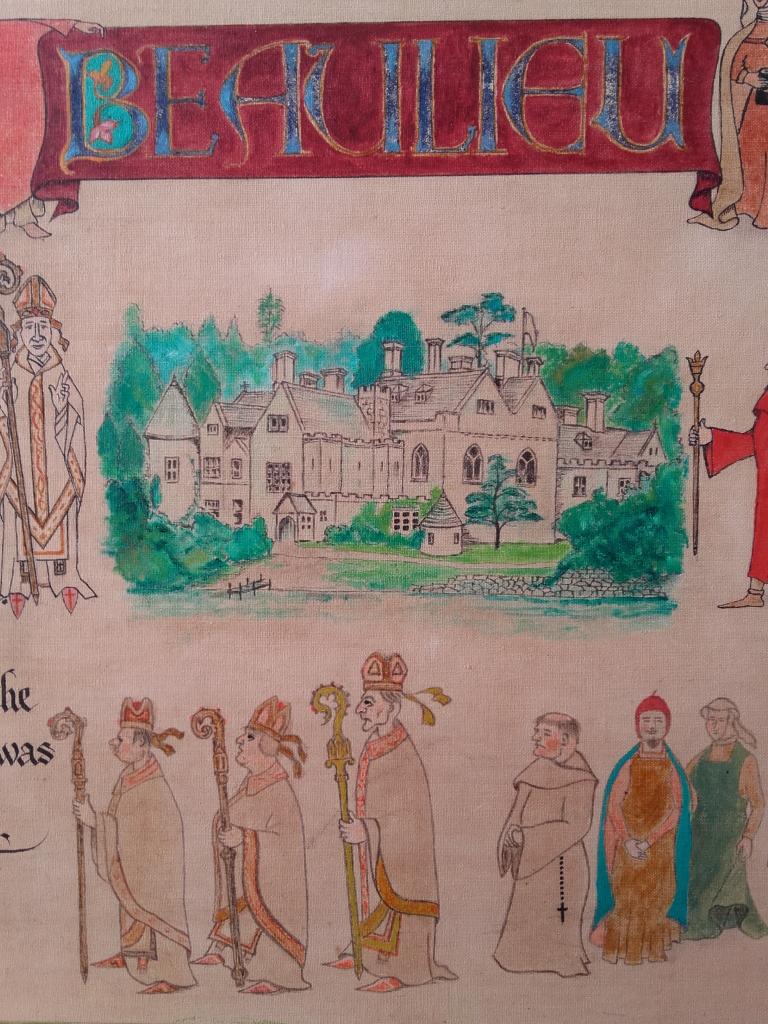 BEAULIEU
he
was